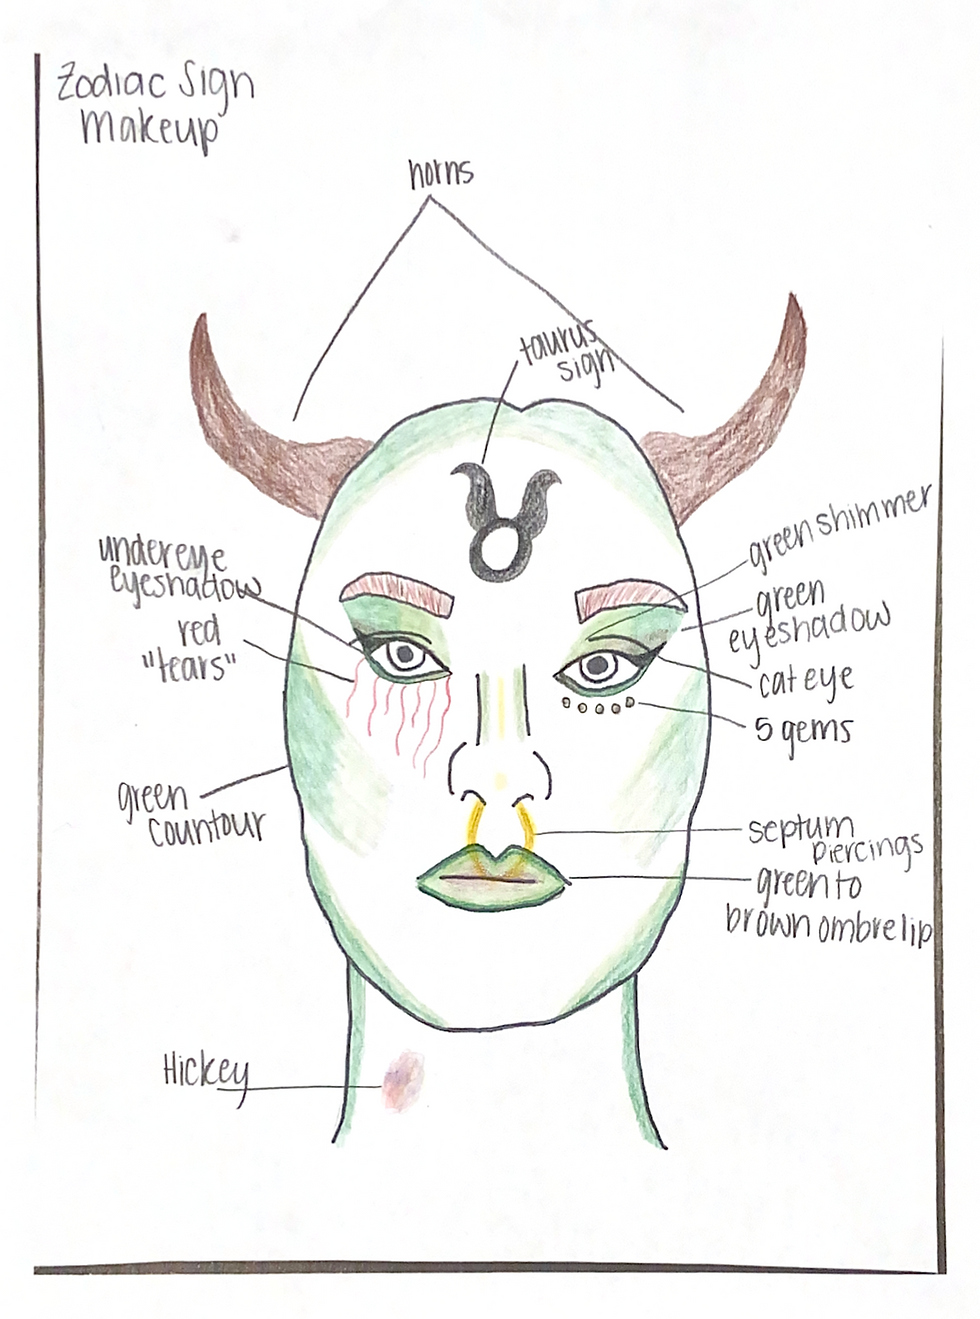 Zodiac Sign
Makeup
horns
taurus
sign
undereye
eyeshadow
red
"tears"
green
countour
Hickey
green shimmer
green
eyeshadow
cat eye
5 gems
septum
piercings
green to
brown ombre lip